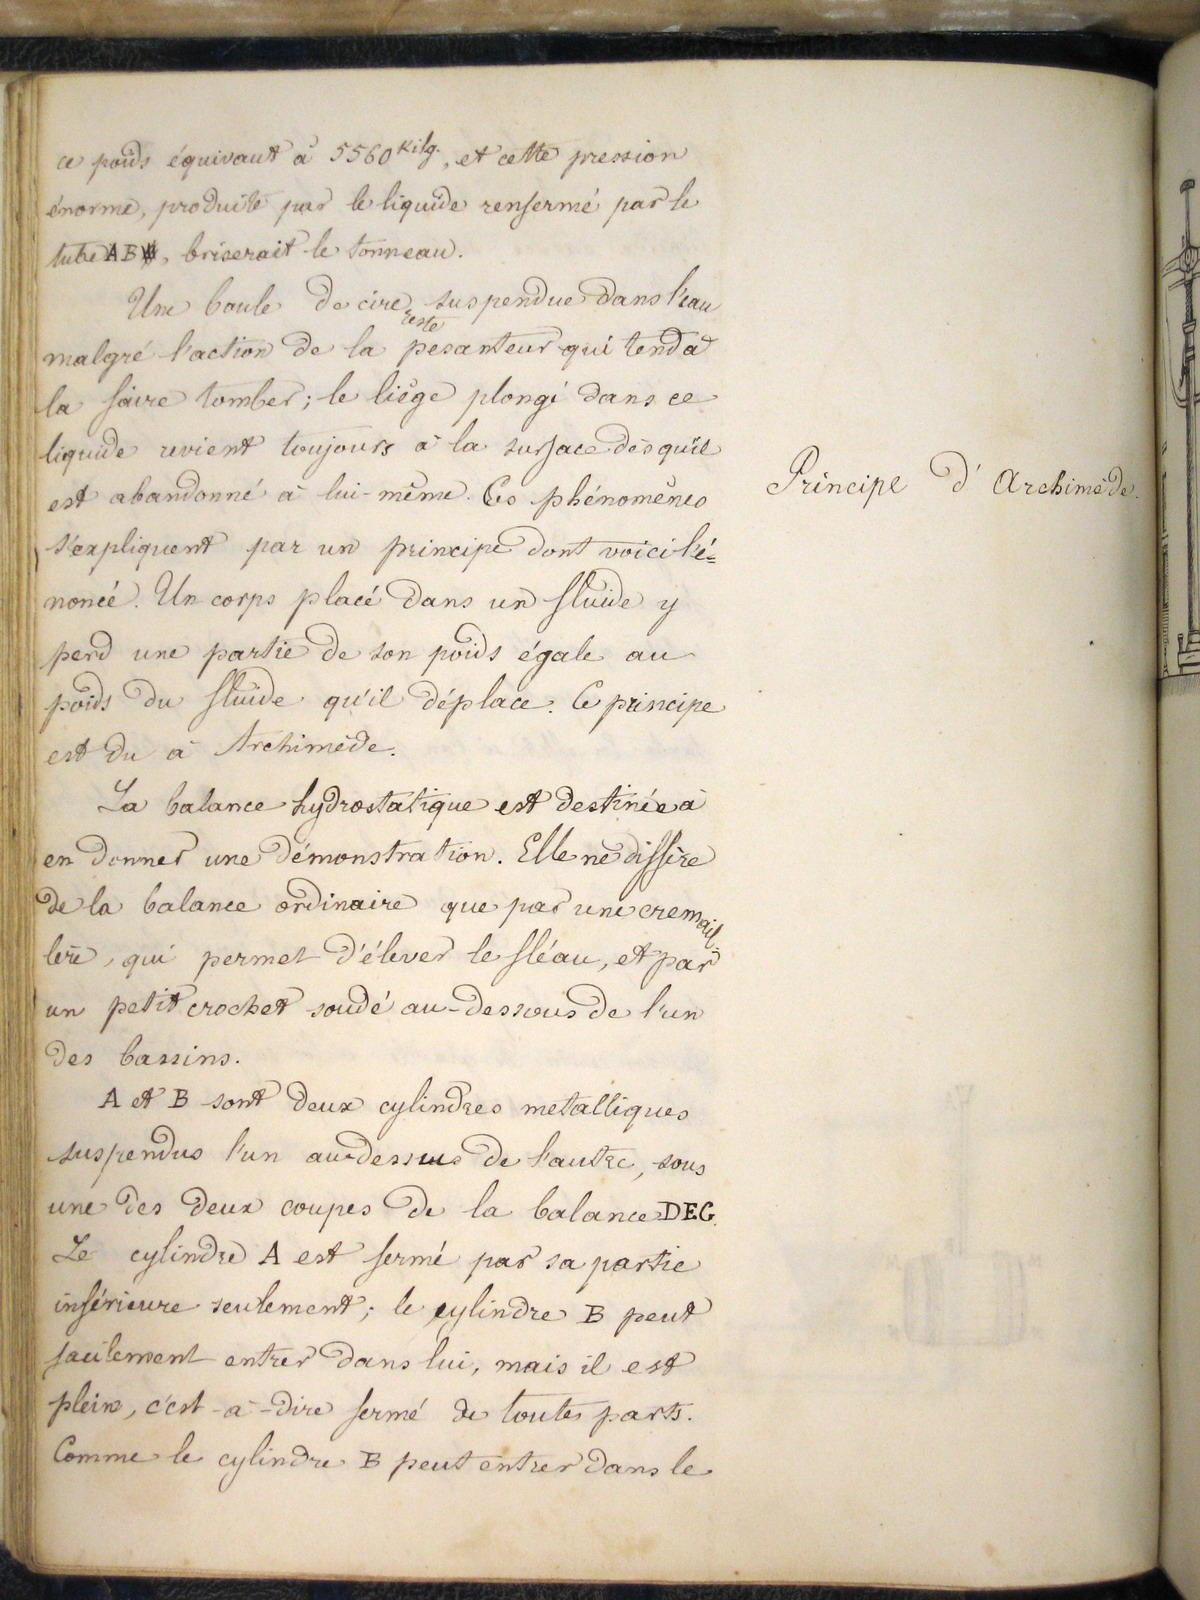 ce poids équivaut à 5560 Kilg., et cette pression
énorme, produite par le liquide renfermé par le
tube AB, briserait le tonneau.
Une boule de cire suspendue dans l'eau
reste
malgré l'action de la pesanteur qui tend à
la faire tomber; le liège plongé dans ce
liquide revient toujours à la surface dès qu'il
est abandonné à lui-même. Ces phénomènes
Principe d'Archimède.
s'expliquent par un principe dont voici l'é=
noncé. Un corps placé dans un fluide y
perd une partie de son poids égale au
poids du fluide qu'il déplace. Ce principe
est du à Archimède.
La balance hydrostatique est destinée à
en donner une démonstration. Elle ne diffère
de la balance ordinaire que par une cremail-
lère, qui permet d'élever le fléau, et par
un petit crochet soudé au-dessous de l'un
des bassins.
A et B sont deux cylindres metalliques
suspendus l'un au-dessus de l'autre, sous
une des deux coupes de la balance DEG.
Le cylindre A est fermé par sa partie
inférieure seulement; le cylindre B peut
facilement entrer dans lui, mais il est
plein, c'est-à-dire fermé de toutes parts.
Comme le cylindre B peut entrer dans le